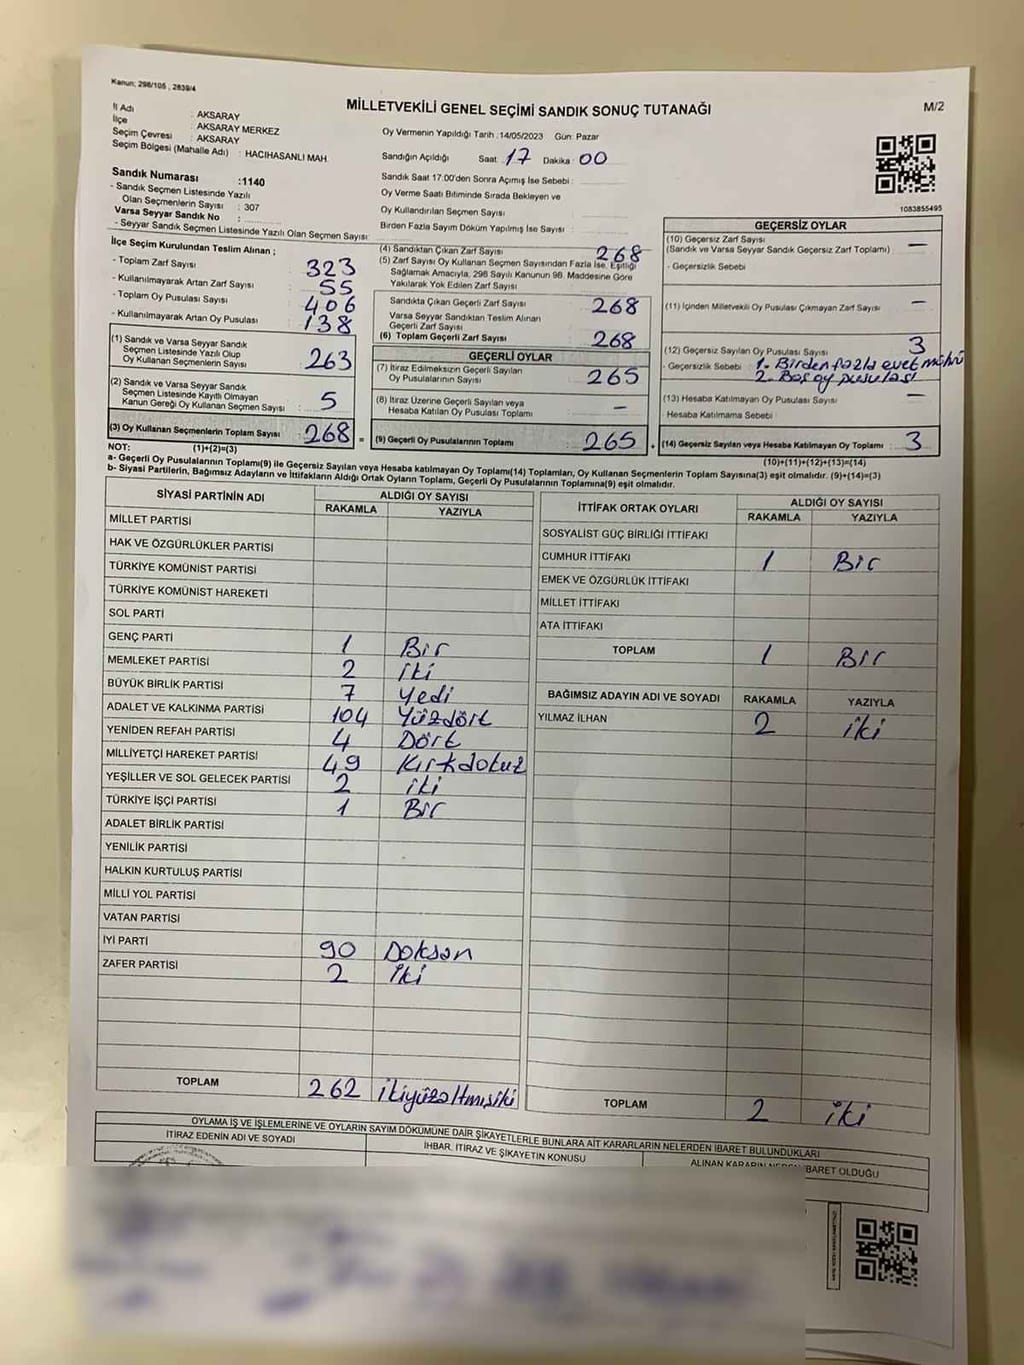 Kanun; 298/105 , 2839/4
MİLLETVEKİLİ GENEL SEÇİMİ SANDIK SONUÇ TUTANAĞI
M/2
İl Adı : AKSARAY
İlçe : AKSARAY MERKEZ
Seçim Çevresi : AKSARAY
Seçim Bölgesi (Mahalle Adı) : HACIHASANLI MAH.
Sandık Numarası :1140
- Sandık Seçmen Listesinde Yazılı
Olan Seçmenlerin Sayısı : 307
Varsa Seyyar Sandık No :
- Seyyar Sandık Seçmen Listesinde Yazılı Olan Seçmen Sayısı:
Oy Vermenin Yapıldığı Tarih :14/05/2023 Gün: Pazar
Sandığın Açıldığı Saat 17 Dakika : 00
Sandık Saat 17:00'den Sonra Açımış İse Sebebi :
Oy Verme Saati Bitiminde Sırada Bekleyen ve
Oy Kullandırılan Seçmen Sayısı :
Birden Fazla Sayım Döküm Yapılmış İse Sayısı :
1083855495
İlçe Seçim Kurulundan Teslim Alınan ;
- Toplam Zarf Sayısı : 323
- Kullanılmayarak Artan Zarf Sayısı : 55
- Toplam Oy Pusulası Sayısı : 406
- Kullanılmayarak Artan Oy Pusulası : 138
(1) Sandık ve Varsa Seyyar Sandık
Seçmen Listesinde Yazılı Olup
Oy Kullanan Seçmenlerin Sayısı : 263
(2) Sandık ve Varsa Seyyar Sandık
Seçmen Listesinde Kayıtlı Olmayan
Kanun Gereği Oy Kullanan Seçmen Sayısı : 5
(3) Oy Kullanan Seçmenlerin Toplam Sayısı : 268 =
(4) Sandıktan Çıkan Zarf Sayısı : 268
(5) Zarf Sayısı Oy Kullanan Seçmen Sayısından Fazla İse, Eşitliği
Sağlamak Amacıyla, 298 Sayılı Kanunun 98. Maddesine Göre
Yakılarak Yok Edilen Zarf Sayısı :
Sandıkta Çıkan Geçerli Zarf Sayısı : 268
Varsa Seyyar Sandıktan Teslim Alınan
Geçerli Zarf Sayısı :
(6) Toplam Geçerli Zarf Sayısı : 268
GEÇERLİ OYLAR
(7) İtiraz Edilmeksizin Geçerli Sayılan
Oy Pusulalarının Sayısı : 265
(8) İtiraz Üzerine Geçerli Sayılan veya
Hesaba Katılan Oy Pusulası Toplamı : -
(9) Geçerli Oy Pusulalarının Toplamı : 265 +
GEÇERSİZ OYLAR
(10) Geçersiz Zarf Sayısı : -
(Sandık ve Varsa Seyyar Sandık Geçersiz Zarf Toplamı)
- Geçersizlik Sebebi
(11) İçinden Milletvekili Oy Pusulası Çıkmayan Zarf Sayısı : -
(12) Geçersiz Sayılan Oy Pusulası Sayısı : 3
- Geçersizlik Sebebi : 1. Birden fazla evet mührü
2. Boş oy pusulası
(13) Hesaba Katılmayan Oy Pusulası Sayısı : -
- Hesaba Katılmama Sebebi :
(14) Geçersiz Sayılan veya Hesaba Katılmayan Oy Toplamı : 3
NOT: (1)+(2)=(3)
(10)+(11)+(12)+(13)=(14)
a- Geçerli Oy Pusulalarının Toplamı(9) ile Geçersiz Sayılan veya Hesaba katılmayan Oy Toplamı(14) Toplamları, Oy Kullanan Seçmenlerin Toplam Sayısına(3) eşit olmalıdır. (9)+(14)=(3)
b- Siyasi Partilerin, Bağımsız Adayların ve İttifakların Aldığı Ortak Oyların Toplamı, Geçerli Oy Pusulalarının Toplamına(9) eşit olmalıdır.
SİYASİ PARTİNİN ADI ALDIĞI OY SAYISI
RAKAMLA YAZIYLA
MİLLET PARTİSİ
HAK VE ÖZGÜRLÜKLER PARTİSİ
TÜRKİYE KOMÜNİST PARTİSİ
TÜRKİYE KOMÜNİST HAREKETİ
SOL PARTİ
GENÇ PARTİ 1 Bir
MEMLEKET PARTİSİ 2 iki
BÜYÜK BİRLİK PARTİSİ 7 Yedi
ADALET VE KALKINMA PARTİSİ 104 Yüzdört
YENİDEN REFAH PARTİSİ 4 Dört
MİLLİYETÇİ HAREKET PARTİSİ 49 Kırkdokuz
YEŞİLLER VE SOL GELECEK PARTİSİ 2 iki
TÜRKİYE İŞÇİ PARTİSİ 1 Bir
ADALET BİRLİK PARTİSİ
YENİLİK PARTİSİ
HALKIN KURTULUŞ PARTİSİ
MİLLİ YOL PARTİSİ
VATAN PARTİSİ
İYİ PARTİ 90 Doksan
ZAFER PARTİSİ 2 İki
TOPLAM 262 ikiyüzaltmışiki
İTTİFAK ORTAK OYLARI ALDIĞI OY SAYISI
RAKAMLA YAZIYLA
SOSYALİST GÜÇ BİRLİĞİ İTTİFAKI
CUMHUR İTTİFAKI 1 Bir
EMEK VE ÖZGÜRLÜK İTTİFAKI
MİLLET İTTİFAKI
ATA İTTİFAKI
TOPLAM 1 Bir
BAĞIMSIZ ADAYIN ADI VE SOYADI RAKAMLA YAZIYLA
YILMAZ İLHAN 2 iki
TOPLAM 2 iki
OYLAMA İŞ VE İŞLEMLERİNE VE OYLARIN SAYIM DÖKÜMÜNE DAİR ŞİKAYETLERLE BUNLARA AİT KARARLARIN NELERDEN İBARET BULUNDUKLARI
İTİRAZ EDENİN ADI VE SOYADI
İHBAR, İTİRAZ VE ŞİKAYETİN KONUSU
ALINAN KARARIN NEDEN İBARET OLDUĞU